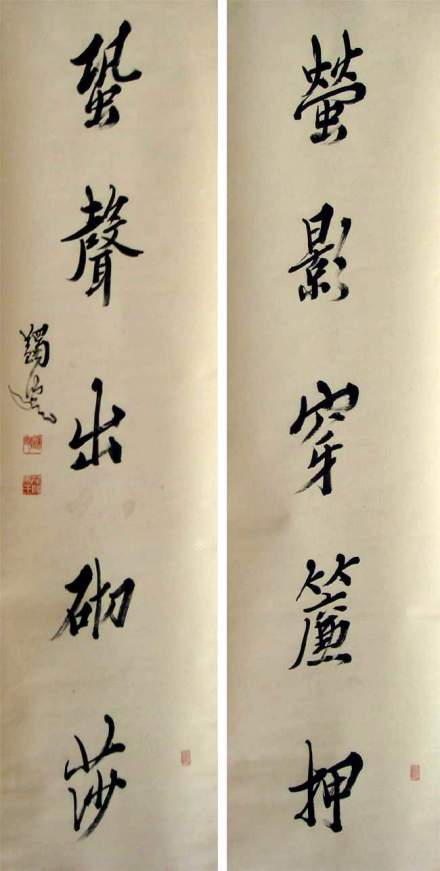 螢影穿簾押
蛩聲出砌莎
蠲叟